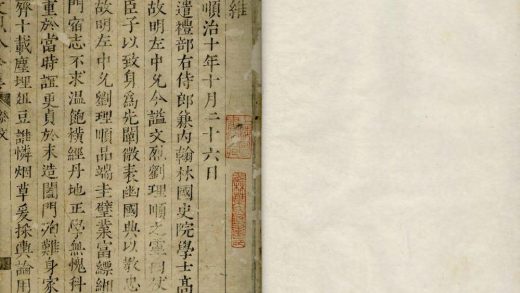 維
順治十年十月二十六日
遣禮部右侍郎兼內翰林國史院學士高
故明左中允今諡文烈劉理順之靈曰伏
臣子以致身為先闡微表幽國典以敦忠
故明左中允劉理順品端圭璧業富縹緗
門宿志不求溫飽橫經丹地正學無愧科
重於當時誼更貞於末造闔門殉難身家
齊十載塵埋俎豆誰憐烟草爰採輿論用
祭文